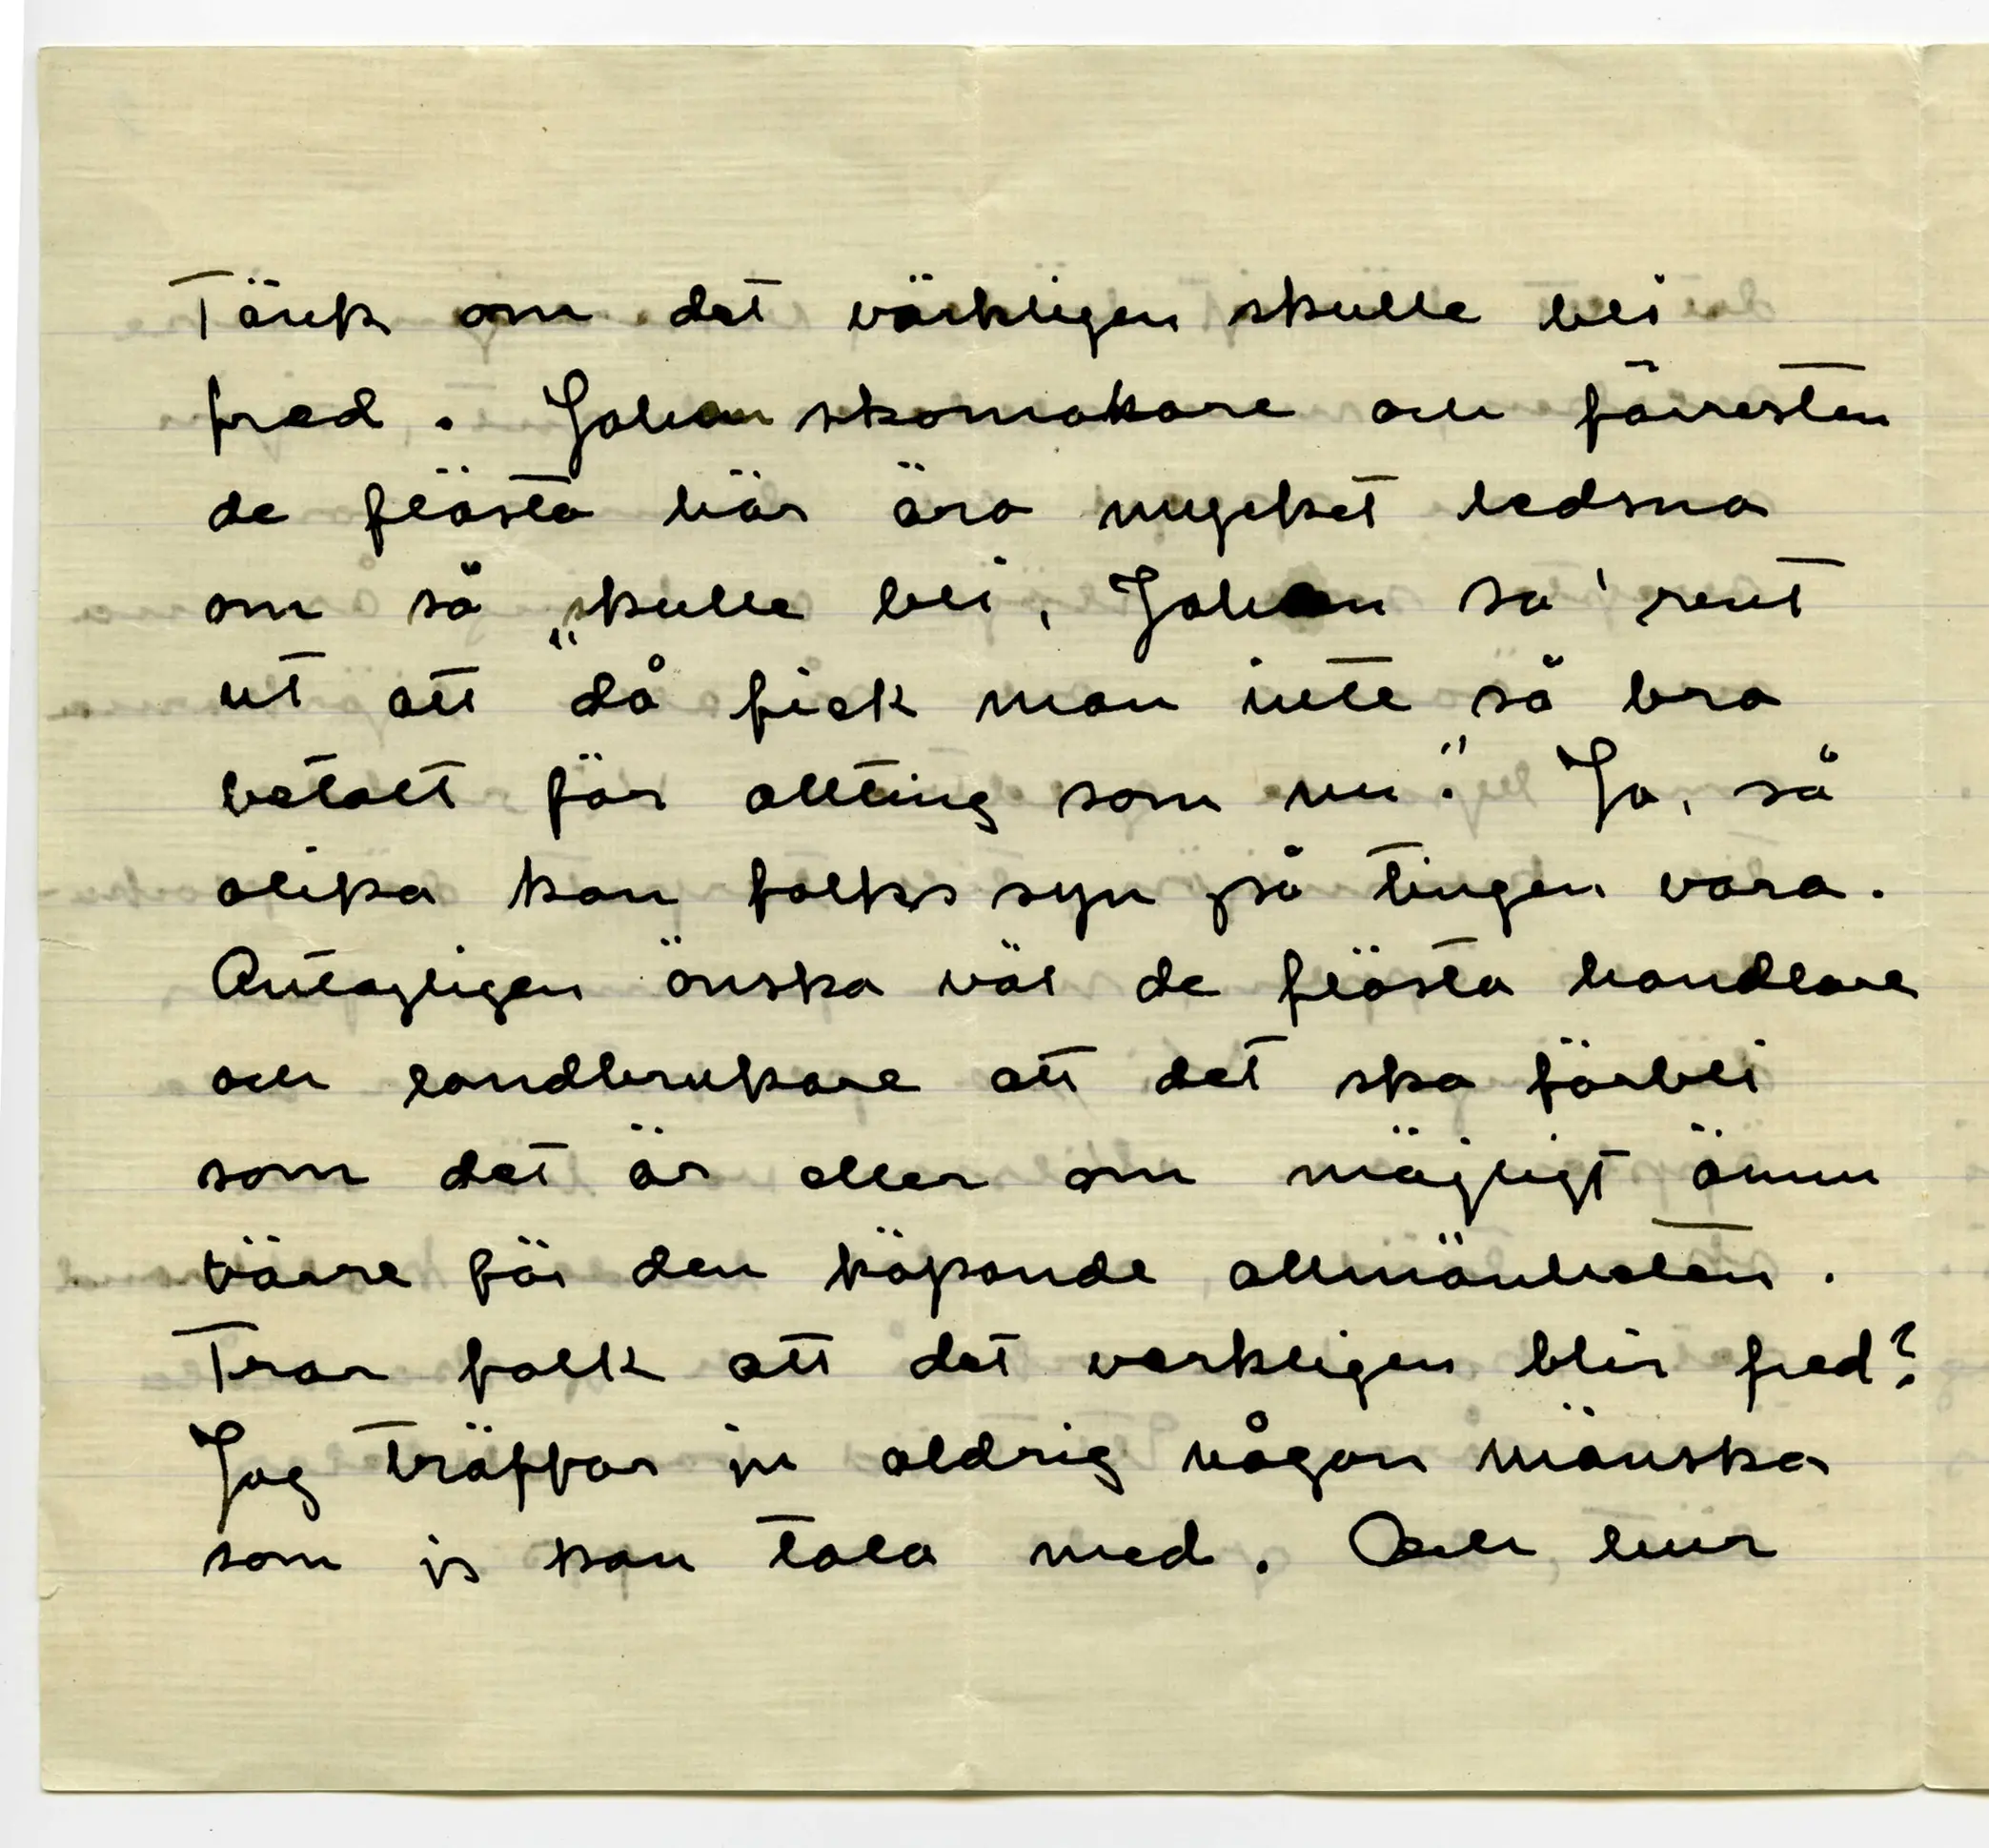 Tänk om det värkligen skulle bli
fred. Johan skomakare och förresten
de flästa här äro mycket ledsna
om så skulle bli, Johan sa' rent
ut att „då fick man inte så bra
betalt för allting som nu." Ja, så
olika kan folks syn på tingen vara.
Antagligen önska väl de flästa handlare
och landbrukare att det ska förbli
som det är eller om möjligt ännu
värre för den köpande allmänheten.
Tror folk att det verkligen blir fred?
Jag träffar ju aldrig någon mänska
som js kan tala med. Och hur